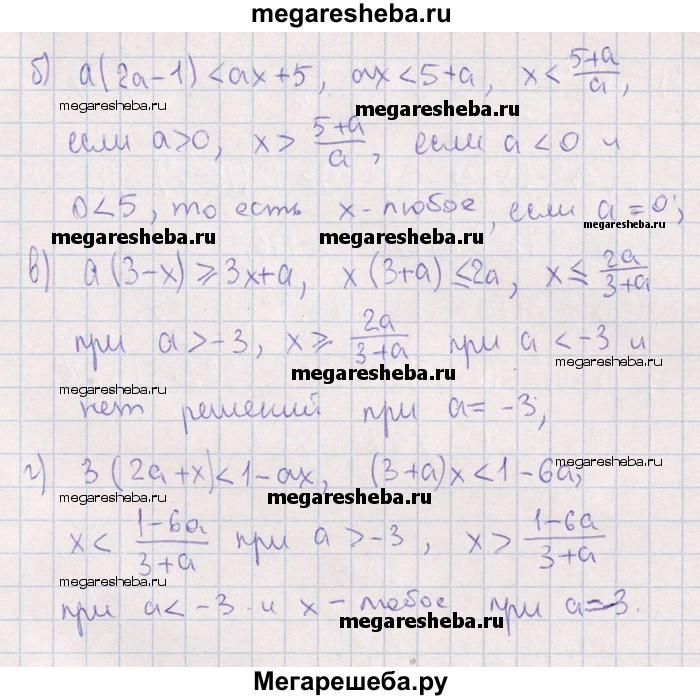 megaresheba.ru
б) a(2a-1)<ax+5, ax<5+a, x<\frac{5+a}{a},
megaresheba.ru megaresheba.ru megaresheba.ru
если a>0, x>\frac{5+a}{a}, если a<0 и
0<5, то есть x-любое, если a=0;
megaresheba.ru megaresheba.ru megaresheba.ru
в) a(3-x)⩾3x+a, x(3+a)≤2a, x≤\frac{2a}{3+a}
megaresheba.ru megaresheba.ru
при a>-3, x⩾\frac{2a}{3+a} при a<-3 и
megaresheba.ru megaresheba.ru
megaresheba.ru
нет решений при a=-3;
megaresheba.ru
г) 3(2a+x)<1-ax, (3+a)x<1-6a,
megaresheba.ru megaresheba.ru megaresheba.ru
x<\frac{1-6a}{3+a} при a>-3, x>\frac{1-6a}{3+a}
megaresheba.ru megaresheba.ru
при a<-3 и x-любое при a=-3.
megaresheba.ru
Мегарешеба.ру